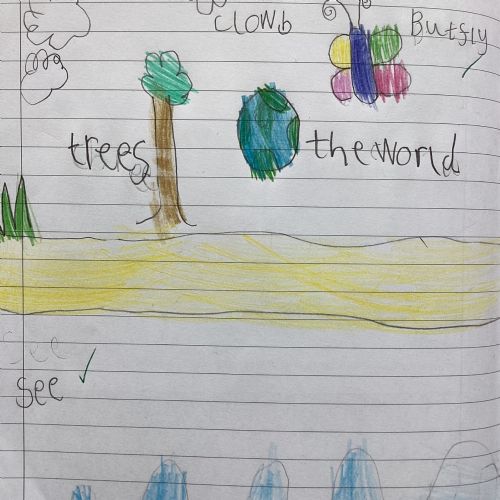 clowb
Butsly
trees
the world
see
see